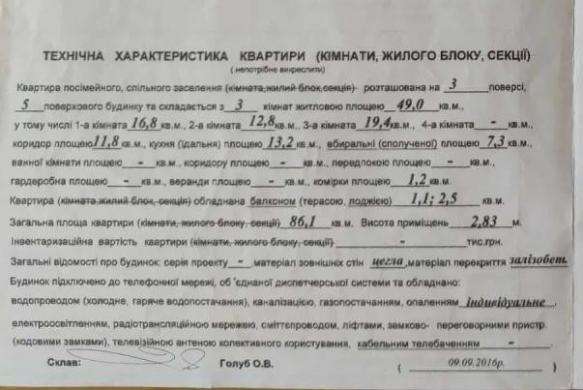 ТЕХНІЧНА ХАРАКТЕРИСТИКА КВАРТИРИ (КІМНАТИ, ЖИЛОГО БЛОКУ, СЕКЦІЇ)
( непотрібне викреслити)
Квартира посімейного, спільного заселення (кімната,жилий блок,секція) розташована на 3 поверсі,
5 поверхового будинку та складається з 3 кімнат житловою площею 49,0 кв.м.,
у тому числі 1-а кімната 16,8 кв.м., 2-а кімната 12,8 кв.м., 3-а кімната 19,4 кв.м., 4-а кімната - кв.м.,
коридор площею 11,8 кв.м., кухня (їдальня) площею 13,2 кв.м., вбиральні (сполученої) площею 7,3 кв.м.,
ванної кімнати площею - кв.м., коридору площею - кв.м., передпокою площею - кв.м.,
гардеробна площею - кв.м., веранди площею - кв.м., комірки площею 1,2 кв.м.
Квартира (кімната,жилий блок, секція) обладнана балконом (терасою, лоджією) 1,1; 2,5 кв.м.
Загальна площа квартири (кімнати, жилого блоку, секції) 86,1 кв.м. Висота приміщень 2,83 м.
Інвентаризаційна вартість квартири (кімнати, жилого блоку, секції) - тис.грн.
Загальні відомості про будинок: серія проекту - матеріал зовнішніх стін цегла ,матеріал перекриття залізобет.
Будинок підключено до телефонної мережі, об 'єднаної диспетчерської системи та обладнано:
водопроводом (холодне, гаряче водопостачання), каналізацією, газопостачанням, опаленням індивідуальне ,
електроосвітленням, радіотрансляційною мережею, сміттєпроводом, ліфтами, замково- переговорними пристр.
(кодовими замками), телевізійною антеною колективного користування, кабельним телебаченням - .
Склав: Голуб О.В. ( 09.09.2016р. )